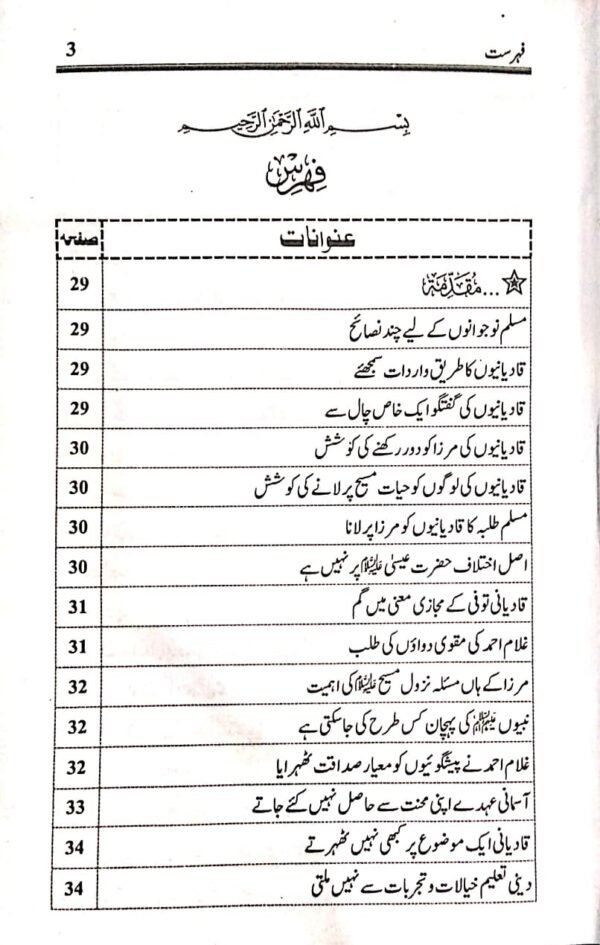 فہرست 3
بِسْمِ اللهِ الرَّحْمٰنِ الرَّحِيْمِ
فہرس
عنوانات صفحہ
☆...مُقَدِّمَة 29
مسلم نوجوانوں کے لیے چند نصائح 29
قادیانیوں کا طریق واردات سمجھئے 29
قادیانیوں کی گفتگو ایک خاص چال سے 29
قادیانیوں کی مرزا کو دور رکھنے کی کوشش 30
قادیانیوں کی لوگوں کو حیات مسیح پر لانے کی کوشش 30
مسلم طلبہ کا قادیانیوں کو مرزا پر لانا 30
اصل اختلاف حضرت عیسیٰ علیہ السلام پر نہیں ہے 30
قادیانی توفی کے مجازی معنی میں گم 31
غلام احمد کی مقوی دواؤں کی طلب 31
مرزا کے ہاں مسئلہ نزول مسیح علیہ السلام کی اہمیت 32
نبیوں علیہم السلام کی پہچان کس طرح کی جاسکتی ہے 32
غلام احمد نے پیشگوئیوں کو معیار صداقت ٹھہرایا 32
آسمانی عہدے اپنی محنت سے حاصل نہیں کئے جاتے 33
قادیانی ایک موضوع پر کبھی نہیں ٹھہرتے 34
دینی تعلیم خیالات و تجربات سے نہیں ملتی 34